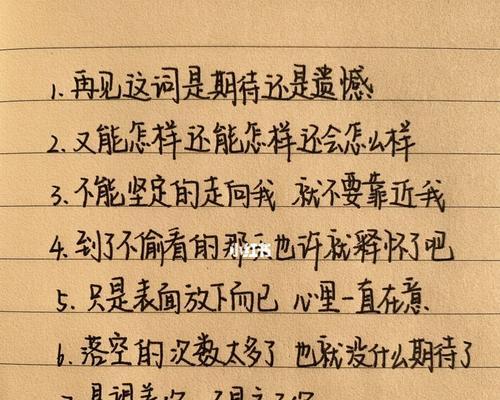 1. 再见这词是期待还是遗憾
2. 又能怎样还能怎样还会怎么样
3. 不能坚定的走向我 就不要靠近我
4. 到了不偷看的那天也许就释怀了吧
小红书
5. 只是表面放下而已 心里一直在意
6. 落空的次数太多了 也就没什么期待了